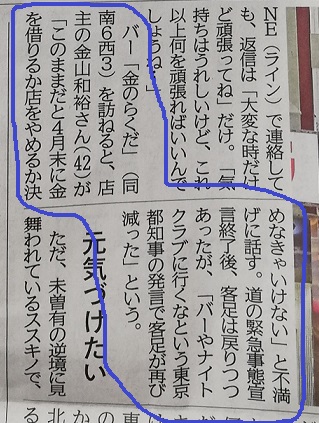 NE（ライン）で連絡して
も、返信は「大変な時だけ
ど頑張ってね」だけ。「気
持ちはうれしいけど、これ
以上何を頑張ればいいんで
しょうね…」
バー「金のらくだ」（同
南6西3）を訪ねると、店
主の金山和裕さん（42）が
「このままだと4月末に金
を借りるか店をやめるか決
めなきゃいけない」と不満
げに話す。道の緊急事態宣
言終了後、客足は戻りつつ
あったが、「バーやナイト
クラブに行くなという東京
都知事の発言で客足が再び
減った」という。
元気づけたい
ただ、未曽有の逆境に見
舞われているススキノで、